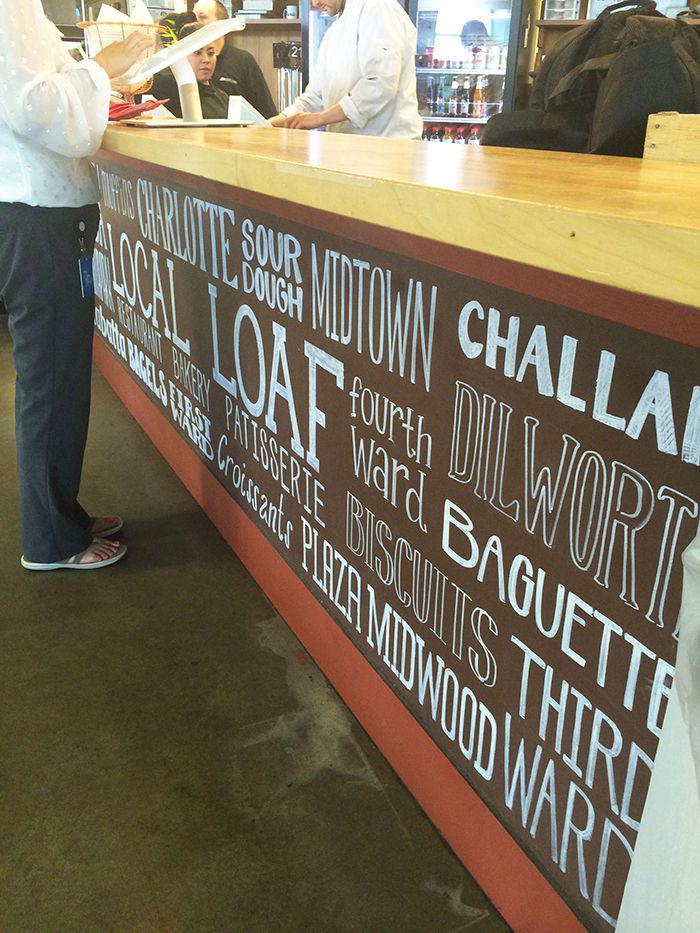 muffins CHARLOTTE SOUR DOUGH MIDTOWN CHALLA
LOCAL LOAF fourth Ward DILWORT
RESTAURANT BAKERY PATISSERIE BISCUITS BAGUETTE
BAGELS FIRST WARD Croissants PLAZA MIDWOOD THIRD WARD
21